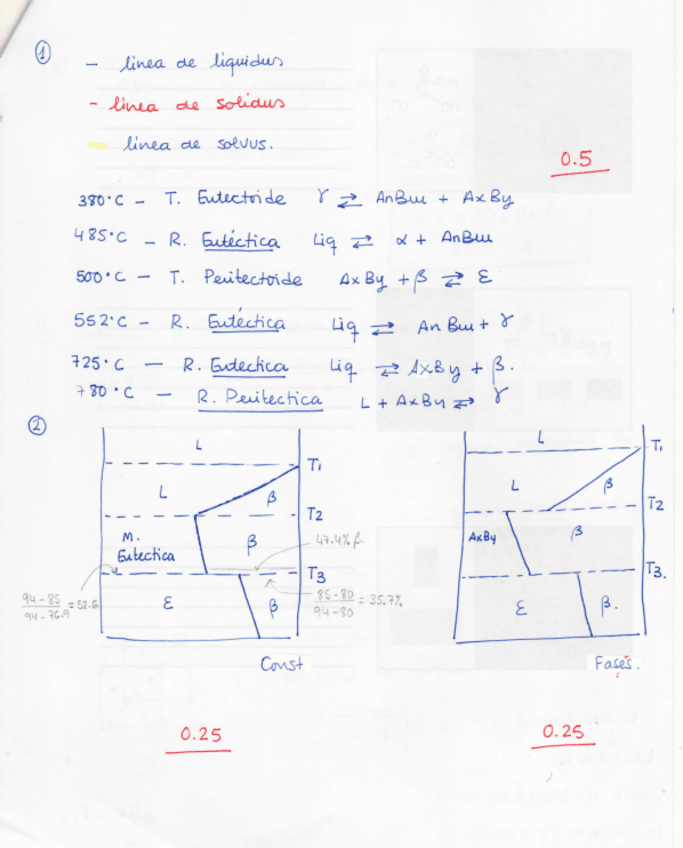 1
- linea de liquidus
- linea de solidus
linea de solvus.
0.5
380°C - T. Eutectoide γ ⇄ AnBm + AxBy
485°C - R. Eutéctica Liq ⇄ α + AnBm
500°C - T. Peritectoide AxBy + β ⇄ ε
552°C - R. Eutéctica Liq ⇄ AnBm + γ
725°C - R. Eutectica Liq ⇄ AxBy + β.
780°C - R. Peritectica L + AxBy ⇄ γ
2
L
T1
L
β
T2
M.
Eutectica
β
47.4% β.
T3
94-85
94-76.9
=52.6
ε
β
85-80
94-80
=35.7%
Const
L
T1
L
β
T2
AxBy
β
T3.
ε
β.
Fases.
0.25
0.25